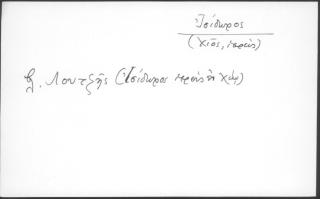 Ἰσίδωρος
(Χῖος, ἱερεύς)
βλ. Λουτζῆς (Ἰσίδωρος ἱερεὺς ἐν Χίῳ)